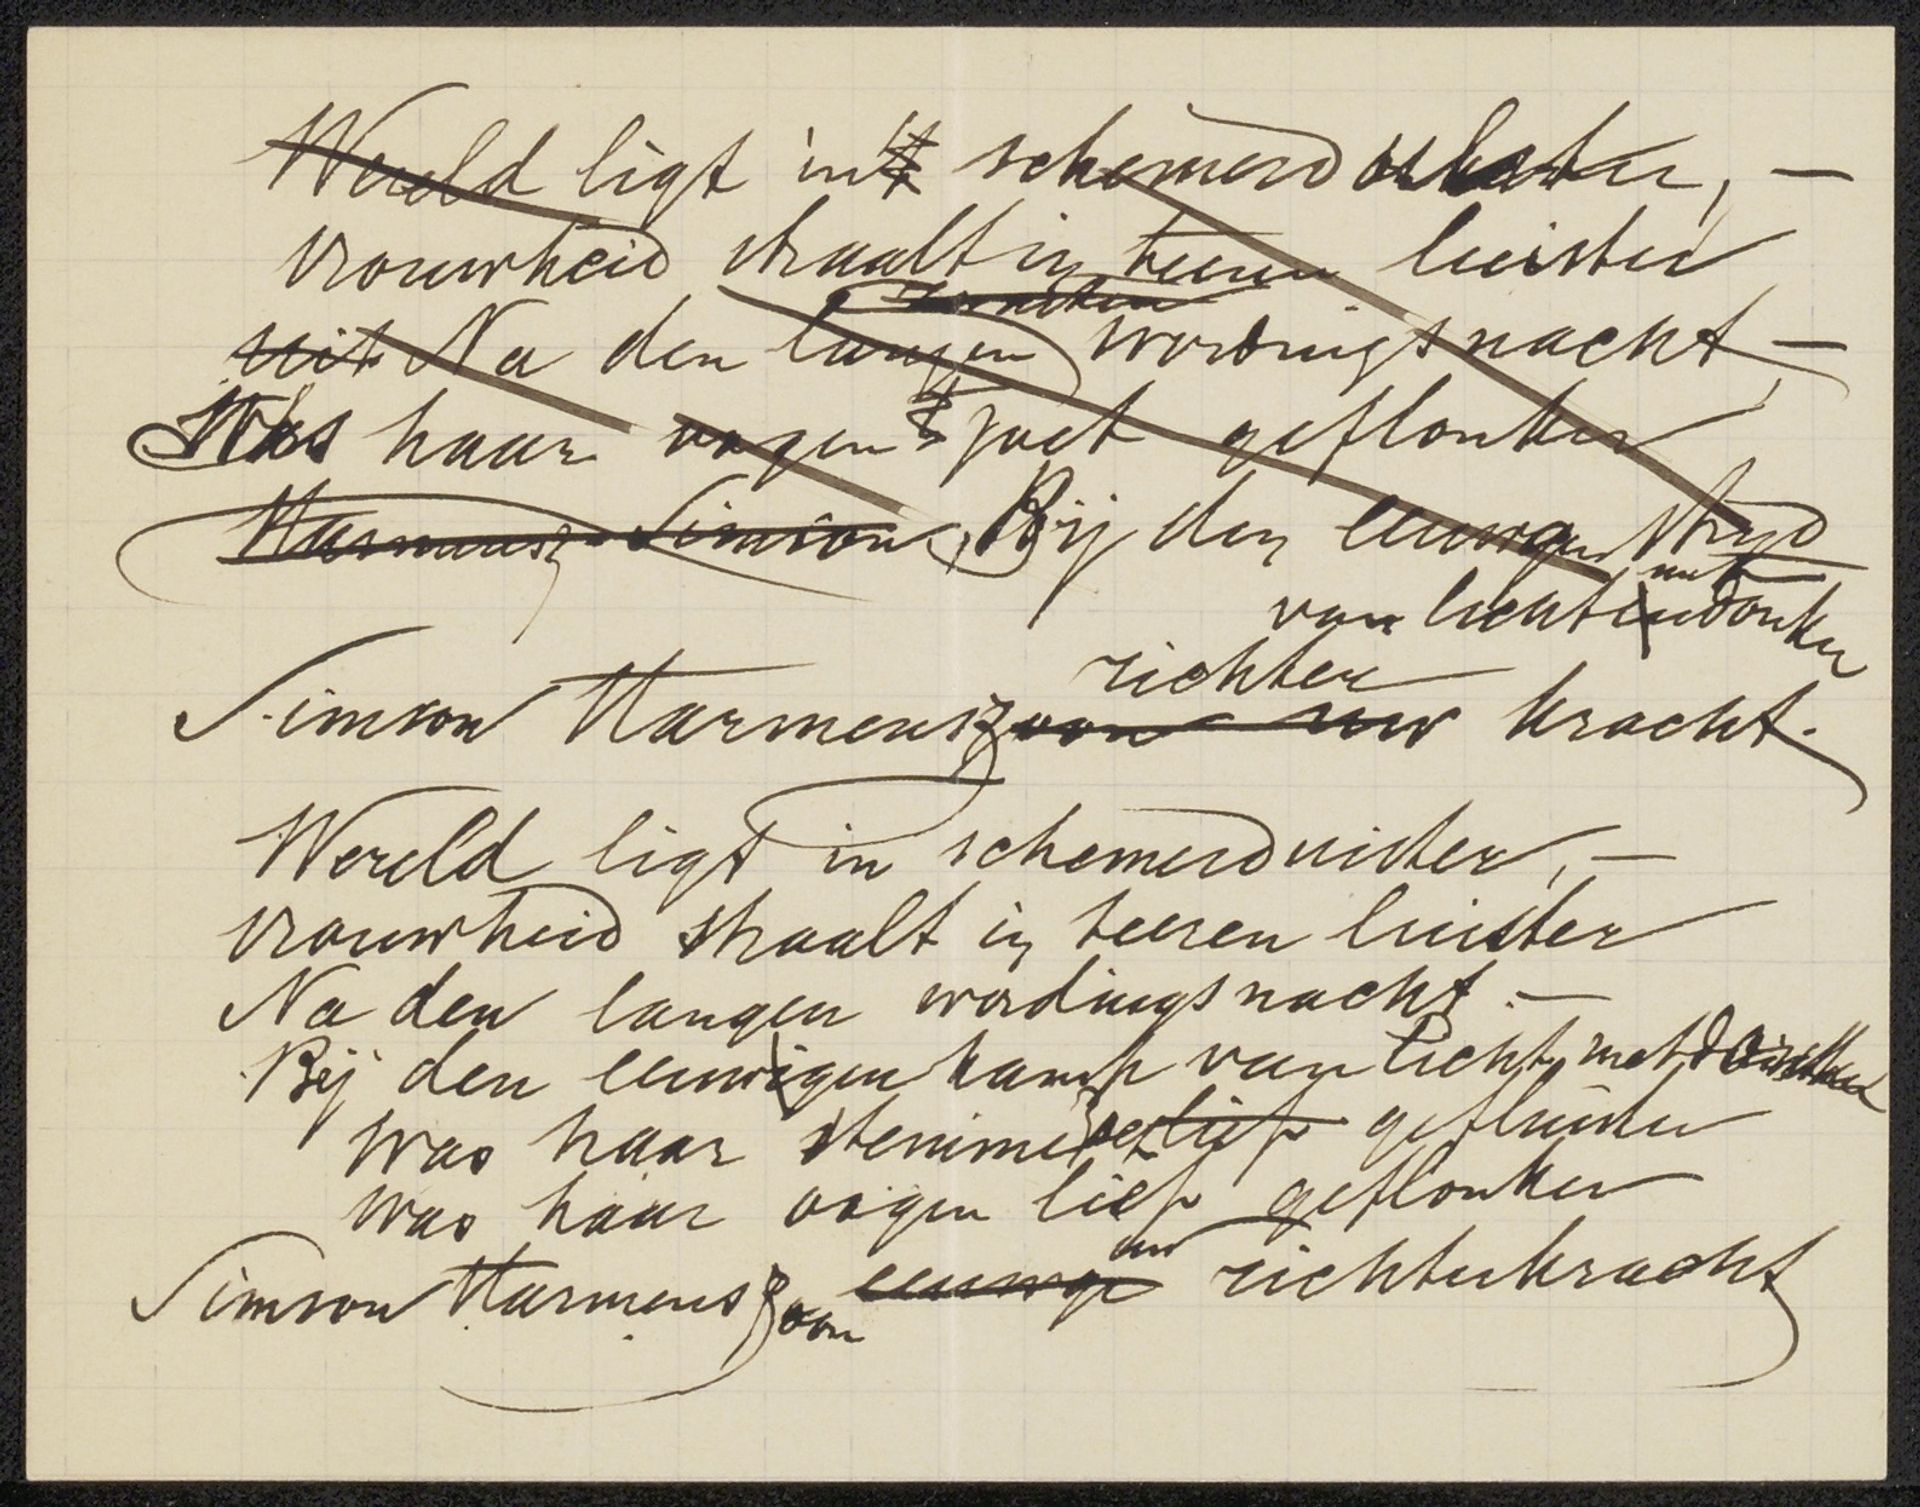 Wereld ligt in 't schemerduister, —
vrouwheid straalt in teeren luister
uit Na den langen wordingsnacht —
Was haar oogen zoet geflonker
Harmensz Simson, Bij den eeuwgen stryd
met
van licht en donker
richter
Simson Harmenszoon uw kracht.
Wereld ligt in schemerduister, —
vrouwheid straalt in teeren luister
Na den langen wordingsnacht. —
Bij den eeuwigen kamp van licht met
Was haar stemme lief gefluister
Was haar oogen lief geflonker
uw
Simson Harmenszoon eeuwge richterkracht